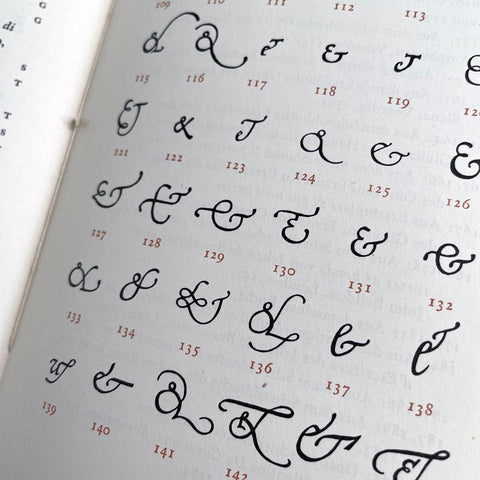 G
G
di
S
T
T
S
T
109 110 111 112 113
& & & & & &
115 116 117 118 119
& & & & & &
121 122 123 124 125 126
& & & & & &
127 128 129 130 131 132
& & & & & &
133 134 135 136 137 138
& & & & & &
139 140 141 142